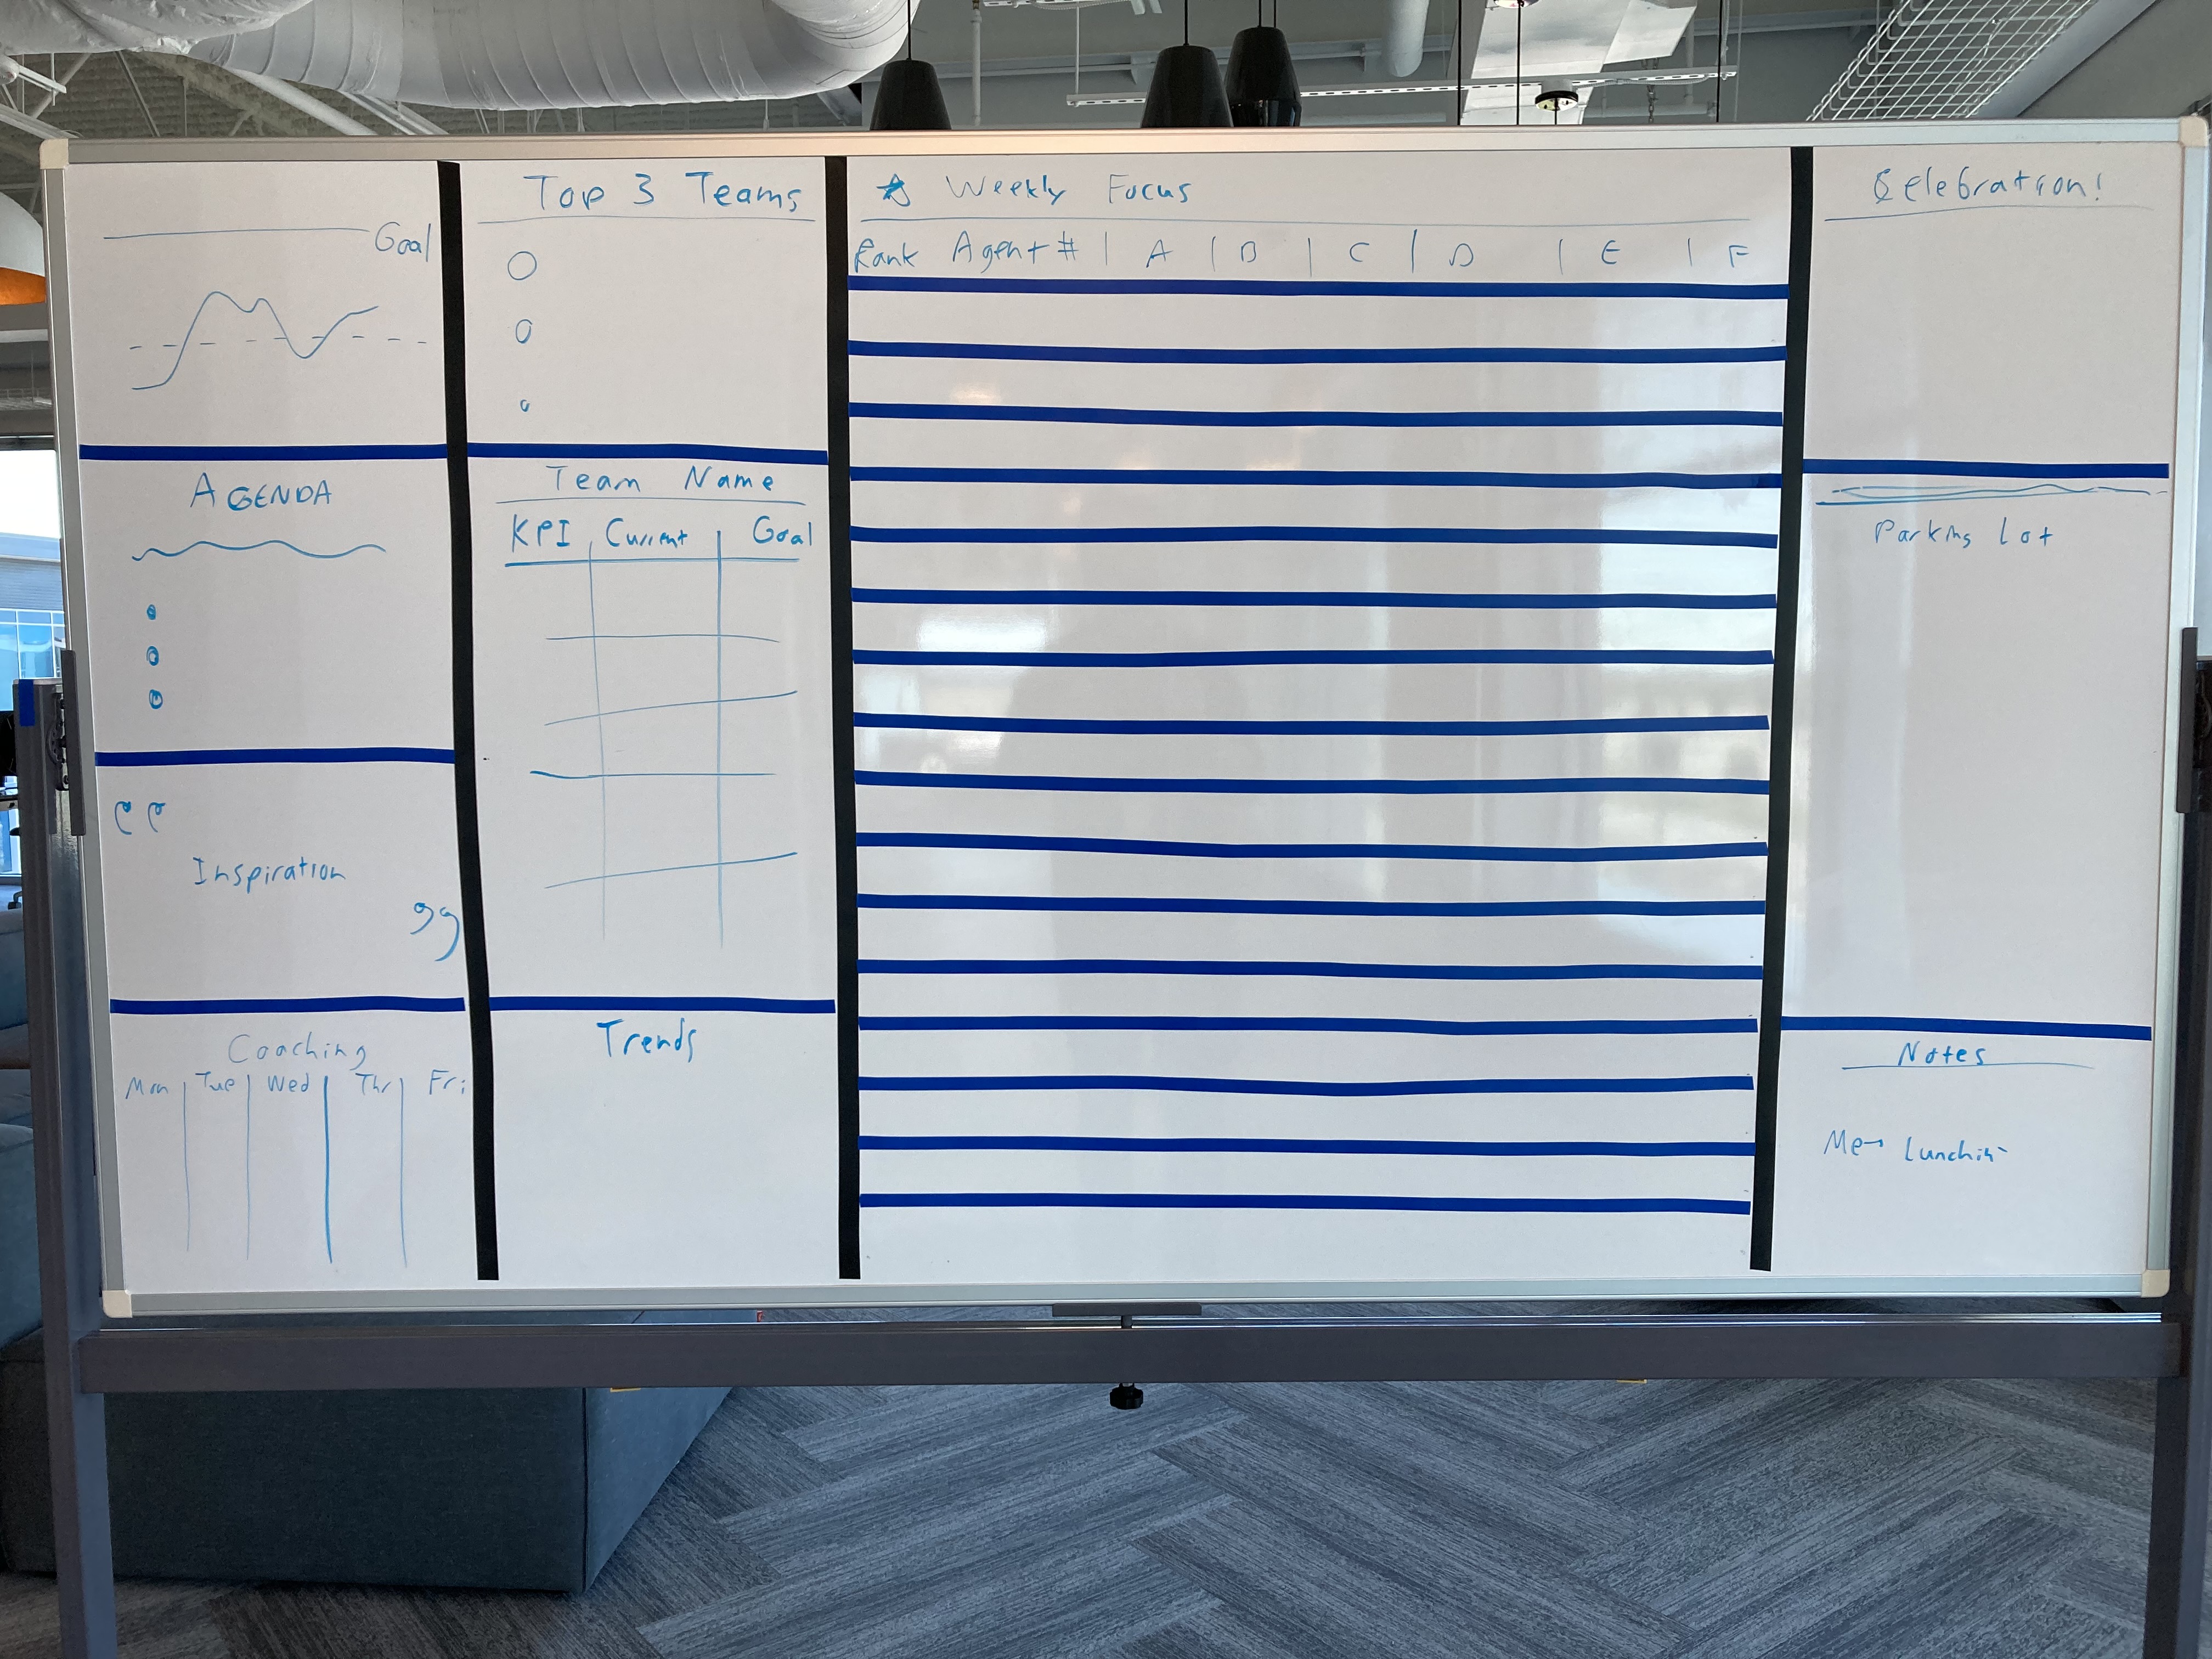 Goal
AGENDA
Inspiration
Coaching
Mon Tue Wed Thr Fri
Top 3 Teams
Team Name
KPI Current Goal
Trends
Weekly Focus
Rank Agent # | A | B | C | D | E | F
Celebration!
Parking Lot
Notes